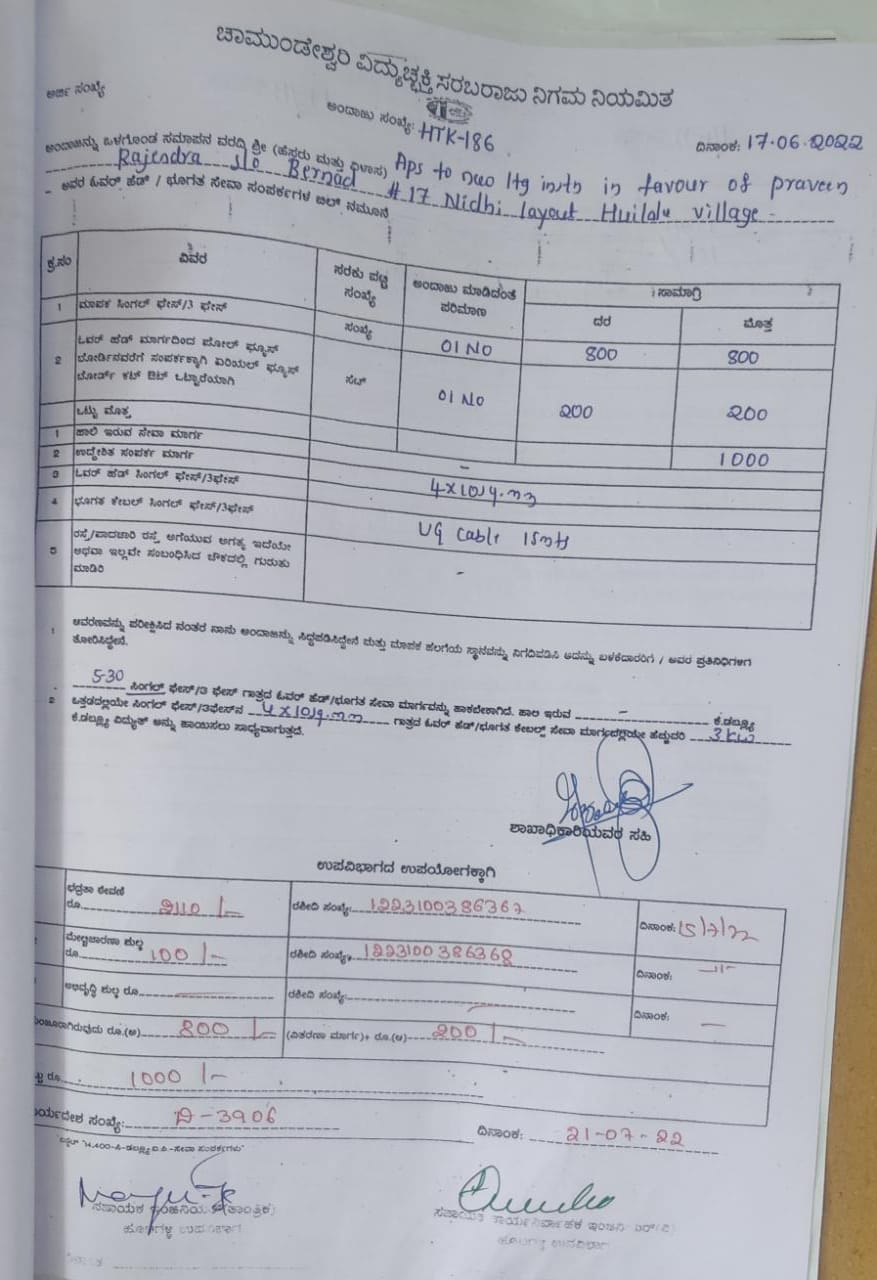 ಚಾಮುಂಡೇಶ್ವರಿ ವಿದ್ಯುಚ್ಛಕ್ತಿ ಸರಬರಾಜು ನಿಗಮ ನಿಯಮಿತ
ಅರ್ಜಿ ಸಂಖ್ಯೆ
ಅಂದಾಜು ಸಂಖ್ಯೆ: HTK-186
ದಿನಾಂಕ: 17.06.2022
ಅಂದಾಜನ್ನು ಒಳಗೊಂಡ ಸಮಾಪನ ವರದಿ ಶ್ರೀ (ಹೆಸರು ಮತ್ತು ವಿಳಾಸ) Aps to new ltg instn in favour of praveen
Rajendra s/o Bernad #17 Nidhi layout Huilalu village
ಅವರ ಓವರ್ ಹೆಡ್ / ಭೂಗತ ಸೇವಾ ಸಂಪರ್ಕಗಳ ಬಿಲ್ ನಮೂನೆ
ಕ್ರ.ಸಂ ವಿವರ ಸರಕು ಪಟ್ಟಿ ಸಂಖ್ಯೆ ಅಂದಾಜು ಮಾಡಿದಂತೆ ಪರಿಮಾಣ ಸಾಮಾಗ್ರಿ
ದರ ಮೊತ್ತ
1 ಮಾಪಕ ಸಿಂಗಲ್ ಫೇಸ್/3 ಫೇಸ್ ಸಂಖ್ಯೆ 01 No 800 800
2 ಓವರ್ ಹೆಡ್ ಮಾರ್ಗದಿಂದ ಪೋಲ್ ಫ್ಯೂಸ್
ಬೋರ್ಡಿನವರೆಗೆ ಸಂಪರ್ಕಕ್ಕಾಗಿ ಏರಿಯಲ್ ಫ್ಯೂಸ್
ಬೋರ್ಡ್ ಕಟ್ ಔಟ್ ಒಟ್ಟಾರೆಯಾಗಿ ಸೆಟ್ 01 No 200 200
ಒಟ್ಟು ಮೊತ್ತ 1000
1 ಹಾಲಿ ಇರುವ ಸೇವಾ ಮಾರ್ಗ –
2 ಉದ್ದೇಶಿತ ಸಂಪರ್ಕ ಮಾರ್ಗ
3 ಓವರ್ ಹೆಡ್ ಸಿಂಗಲ್ ಫೇಸ್/3ಫೇಸ್ 4x10
4 ಭೂಗತ ಕೇಬಲ್ ಸಿಂಗಲ್ ಫೇಸ್/3ಫೇಸ್ UG Cable 15mtr
5 ರಸ್ತೆ/ಪಾದಚಾರಿ ರಸ್ತೆ ಅಗೆಯುವ ಅಗತ್ಯ ಇದೆಯೇ
ಅಥವಾ ಇಲ್ಲವೇ ಸಂಬಂಧಿಸಿದ ಚೌಕದಲ್ಲಿ ಗುರುತು
ಮಾಡಿರಿ –
1 ಆವರಣವನ್ನು ಪರೀಕ್ಷಿಸಿದ ನಂತರ ನಾನು ಅಂದಾಜನ್ನು ಸಿದ್ಧಪಡಿಸಿದ್ದೇನೆ ಮತ್ತು ಮಾಪಕ ಹಲಗೆಯ ಸ್ಥಾನವನ್ನು ನಿಗದಿಪಡಿಸಿ ಅದನ್ನು ಬಳಕೆದಾರರಿಗೆ / ಅವರ ಪ್ರತಿನಿಧಿಗಳಿಗೆ
ತೋರಿಸಿದ್ದೇನೆ.
5-30 ಸಿಂಗಲ್ ಫೇಸ್/3 ಫೇಸ್ ಗಾತ್ರದ ಓವರ್ ಹೆಡ್/ಭೂಗತ ಸೇವಾ ಮಾರ್ಗವನ್ನು ಹಾಕಬೇಕಾಗಿದೆ. ಹಾಲಿ ಇರುವ – ಕೆ.ಡಬ್ಲ್ಯು
2 ಒತ್ತಡದಲ್ಲಿಯೇ ಸಿಂಗಲ್ ಫೇಸ್/3ಫೇಸ್‌ನ 4x10 ಗಾತ್ರದ ಓವರ್ ಹೆಡ್/ಭೂಗತ ಕೇಬಲ್ ಸೇವಾ ಮಾರ್ಗದಲ್ಲಿಯೇ ಹೆಚ್ಚುವರಿ 3 kw
ಕೆ.ಡಬ್ಲ್ಯು ವಿದ್ಯುತ್ ಅನ್ನು ಹಾಯಿಸಲು ಸಾಧ್ಯವಾಗುತ್ತದೆ.
ಶಾಖಾಧಿಕಾರಿಯವರ ಸಹಿ
ಉಪವಿಭಾಗದ ಉಪಯೋಗಕ್ಕಾಗಿ
ಭದ್ರತಾ ಠೇವಣಿ
ರೂ. 2110 /- ರಶೀದಿ ಸಂಖ್ಯೆ: 1223100386367 ದಿನಾಂಕ: 15/7/22
ಮೇಲ್ವಿಚಾರಣಾ ಶುಲ್ಕ
ರೂ. 100 /- ರಶೀದಿ ಸಂಖ್ಯೆ: 1223100386368 ದಿನಾಂಕ: –"–
ಅಭಿವೃದ್ಧಿ ಶುಲ್ಕ ರೂ. ರಶೀದಿ ಸಂಖ್ಯೆ: – ದಿನಾಂಕ: –
ರೂ.(ಅ) 800 /- (ವಿತರಣಾ ಮಾರ್ಗ)+ ರೂ.(ಆ) 200 /-
ರೂ. 1000 /-
ಸಂಖ್ಯೆ: D-3906 ದಿನಾಂಕ: 21-07-22